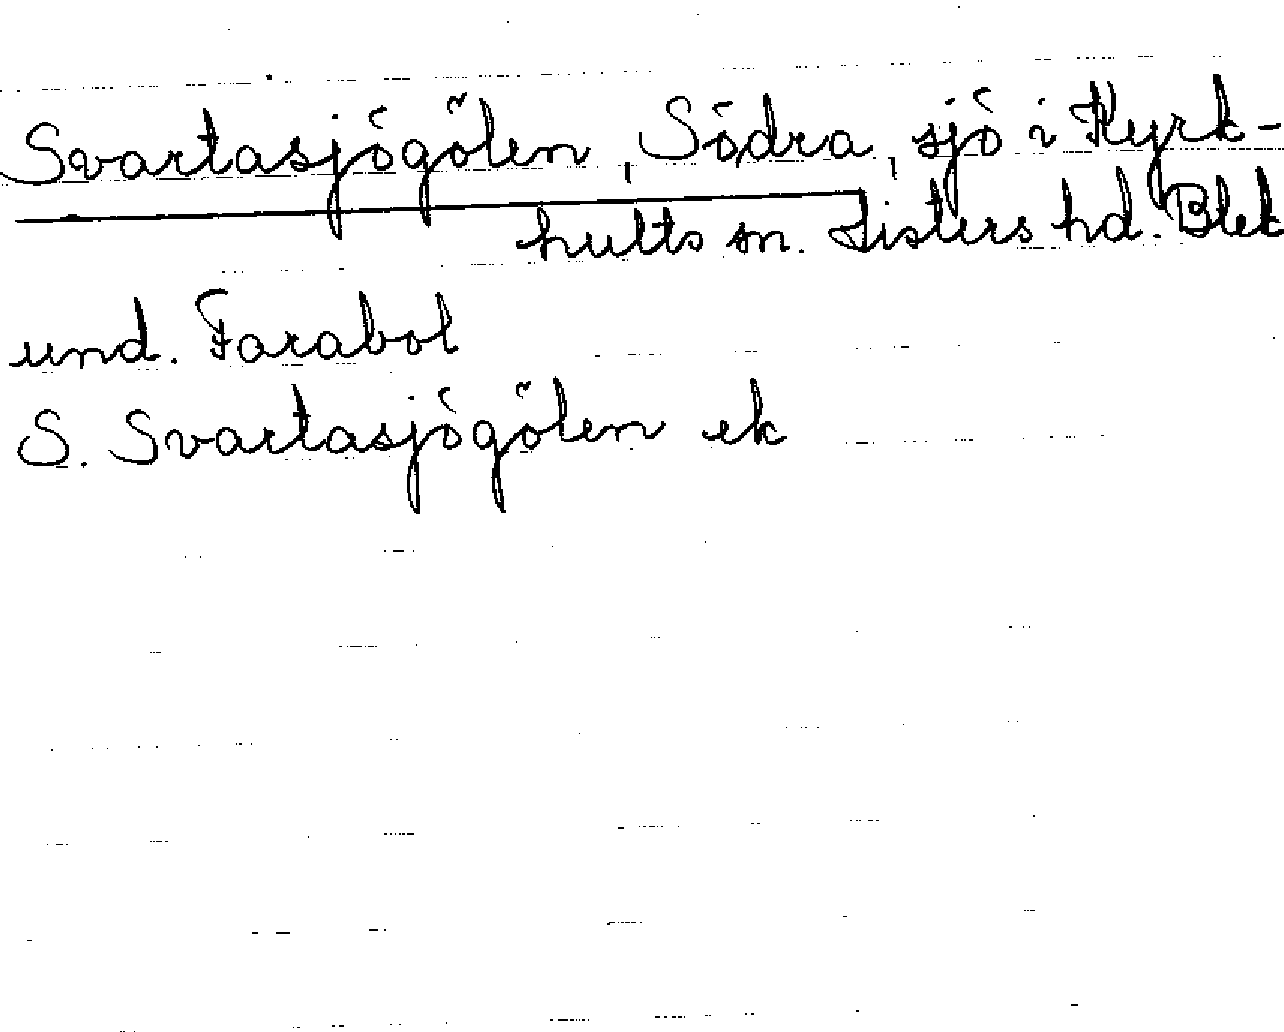 Svartasjögölen, Södra, sjö i Kyrk-
hults sn. Listers hd. Blek
und. Farabol
S. Svartasjögölen ek